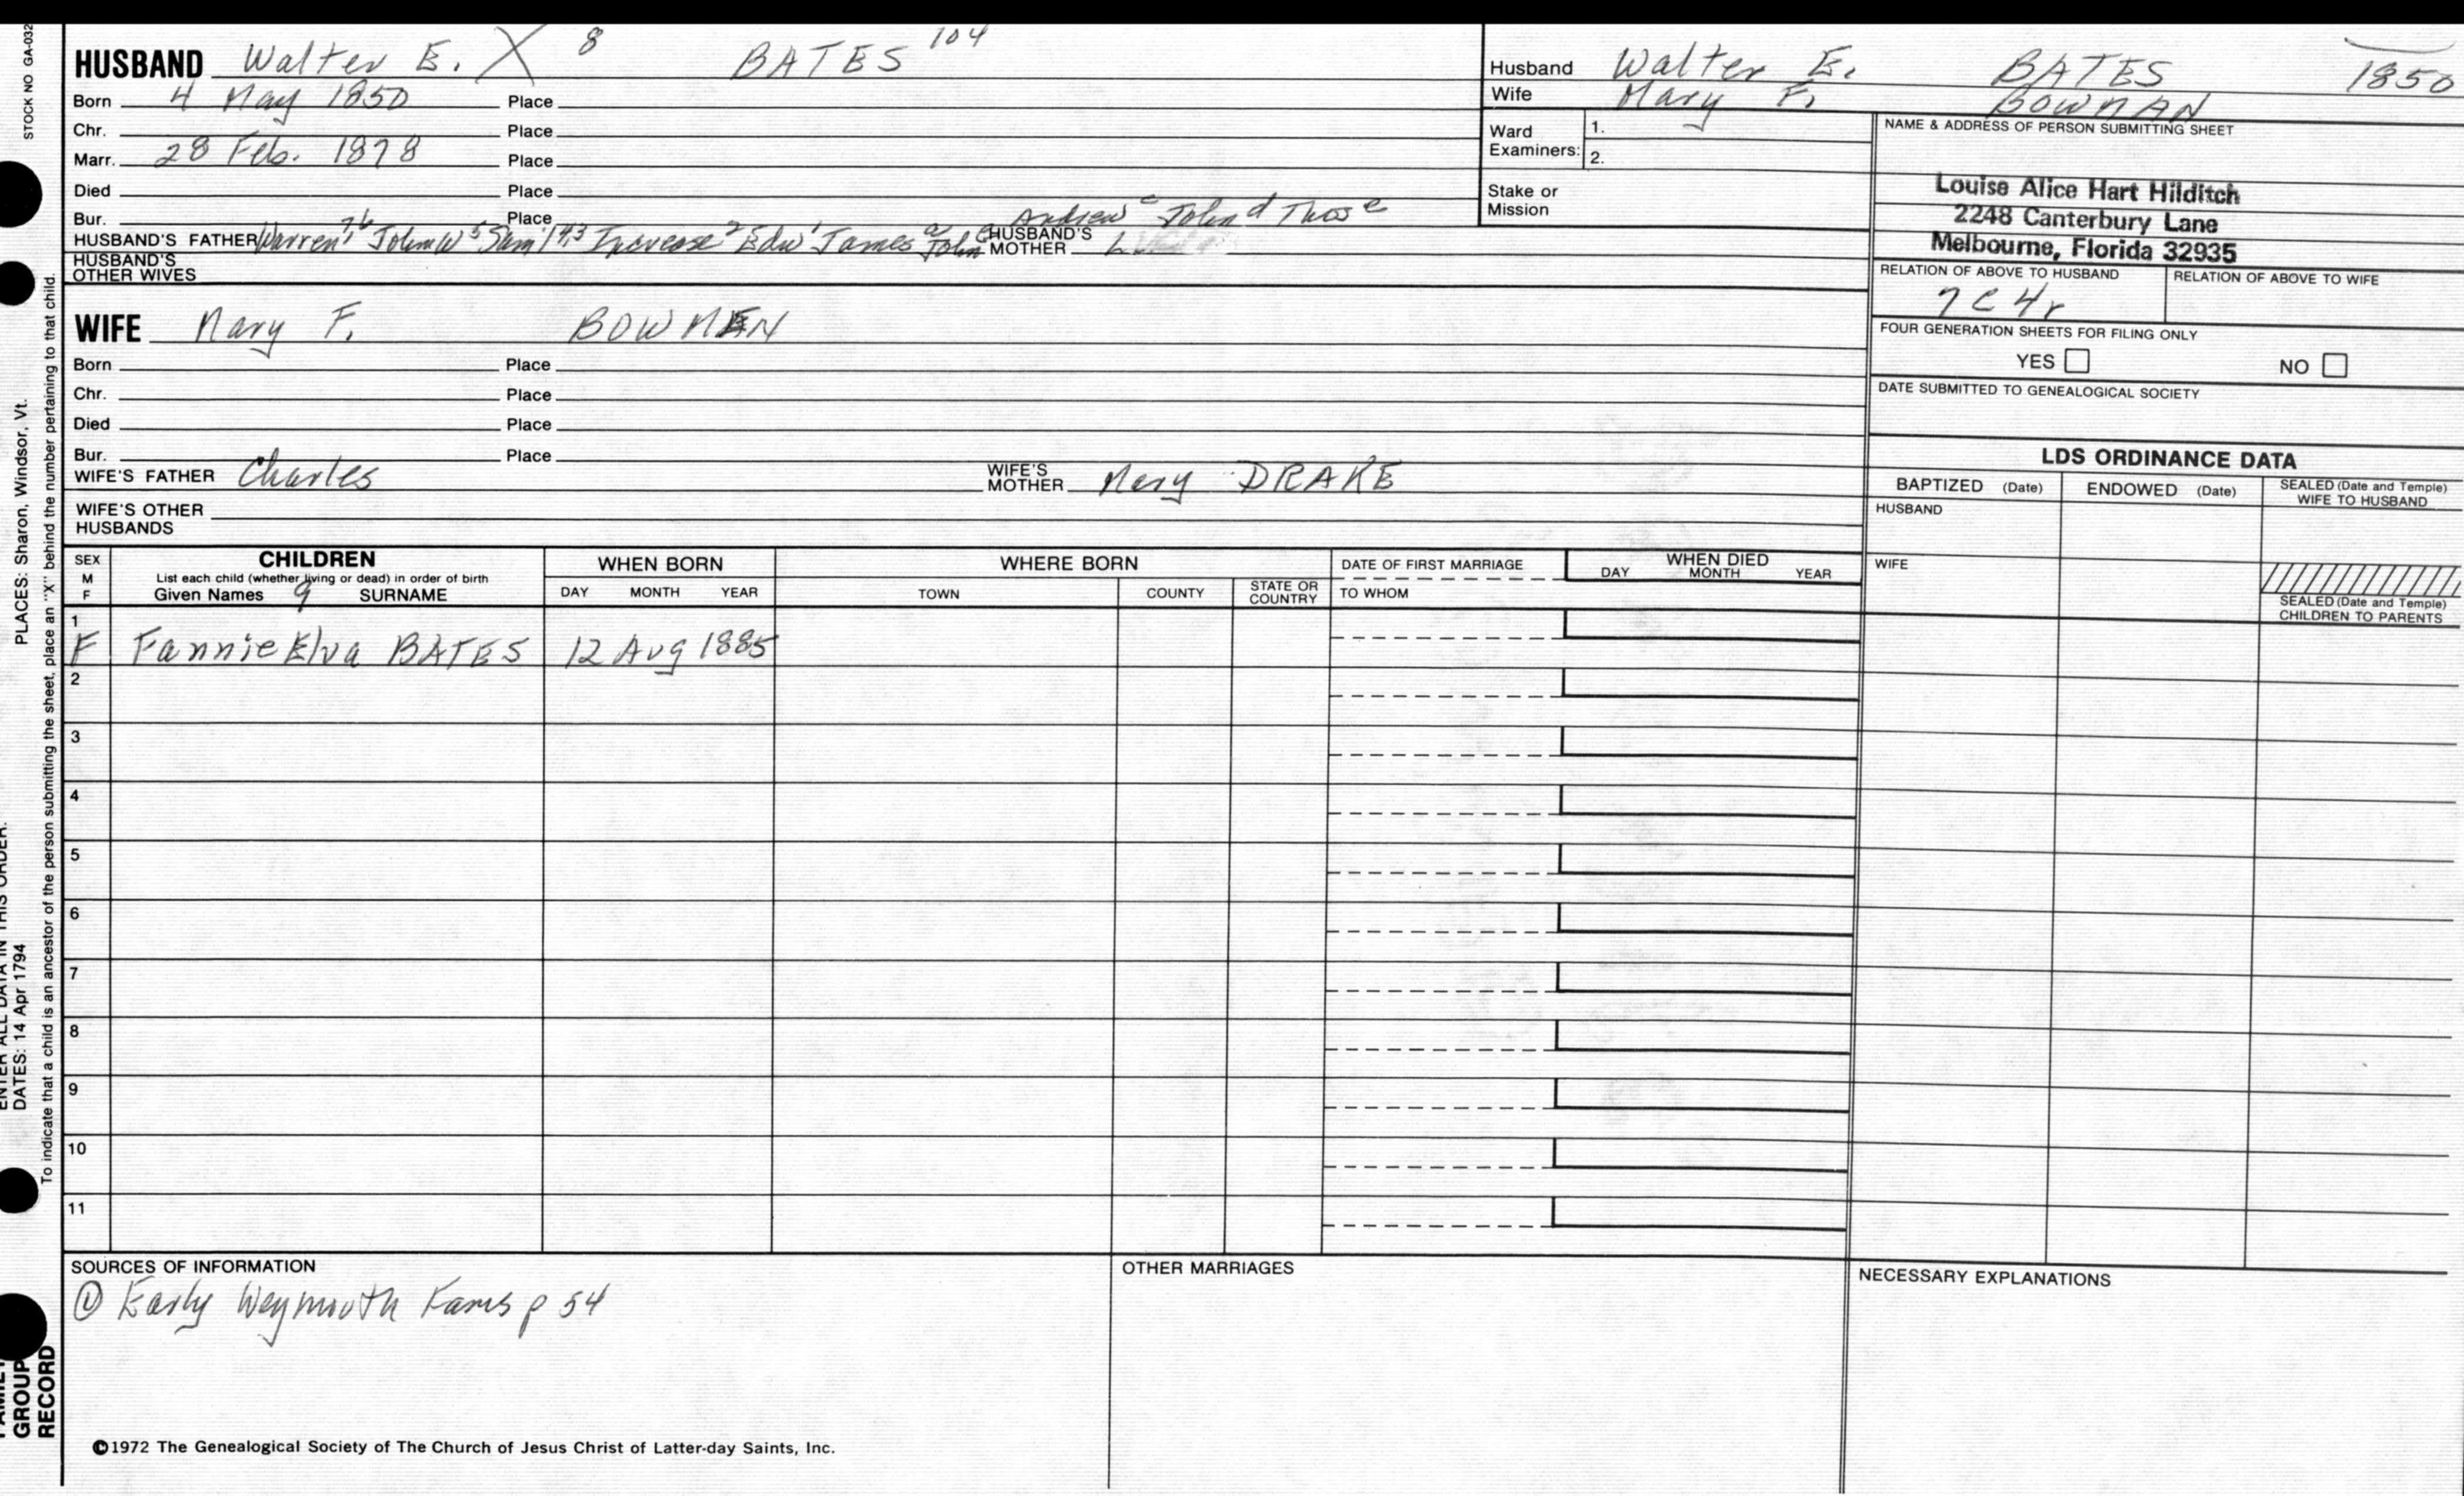 STOCK NO GA-032
PLACES: Sharon, Windsor, Vt.
ENTER ALL DATA IN THIS ORDER.
DATES: 14 Apr 1794
To indicate that a child is an ancestor of the person submitting the sheet, place an "X" behind the number pertaining to that child.
GROUP
RECORD
HUSBAND Walter E. X 8 BATES 104
Born 4 May 1850 Place
Chr. Place
Marr. 28 Feb. 1878 Place
Died Place
Bur. Place
Andrew c John d Thos e
HUSBAND'S FATHER Warren 7,6 John W 5 Sam'l 4,3 Increase 2 Edw 1 James a John HUSBAND'S MOTHER
HUSBAND'S OTHER WIVES
WIFE Mary F. BOWMAN
Born Place
Chr. Place
Died Place
Bur. Place
WIFE'S FATHER Charles WIFE'S MOTHER Mary DRAKE
WIFE'S OTHER HUSBANDS
Husband Walter E. BATES 1850
Wife Mary F. BOWMAN
Ward Examiners: 1.
2.
Stake or Mission
NAME & ADDRESS OF PERSON SUBMITTING SHEET
Louise Alice Hart Hilditch
2248 Canterbury Lane
Melbourne, Florida 32935
RELATION OF ABOVE TO HUSBAND RELATION OF ABOVE TO WIFE
7C4r
FOUR GENERATION SHEETS FOR FILING ONLY
YES NO
DATE SUBMITTED TO GENEALOGICAL SOCIETY
LDS ORDINANCE DATA
BAPTIZED (Date) ENDOWED (Date) SEALED (Date and Temple) WIFE TO HUSBAND
HUSBAND
WIFE
SEALED (Date and Temple) CHILDREN TO PARENTS
SEX M F CHILDREN WHEN BORN WHERE BORN DATE OF FIRST MARRIAGE WHEN DIED
List each child (whether living or dead) in order of birth
Given Names 9 SURNAME DAY MONTH YEAR TOWN COUNTY STATE OR COUNTRY TO WHOM DAY MONTH YEAR
1
F Fannie Elva BATES 12 Aug 1885
2
3
4
5
6
7
8
9
10
11
SOURCES OF INFORMATION
① Early Weymouth Fams p 54
OTHER MARRIAGES
NECESSARY EXPLANATIONS
©1972 The Genealogical Society of The Church of Jesus Christ of Latter-day Saints, Inc.